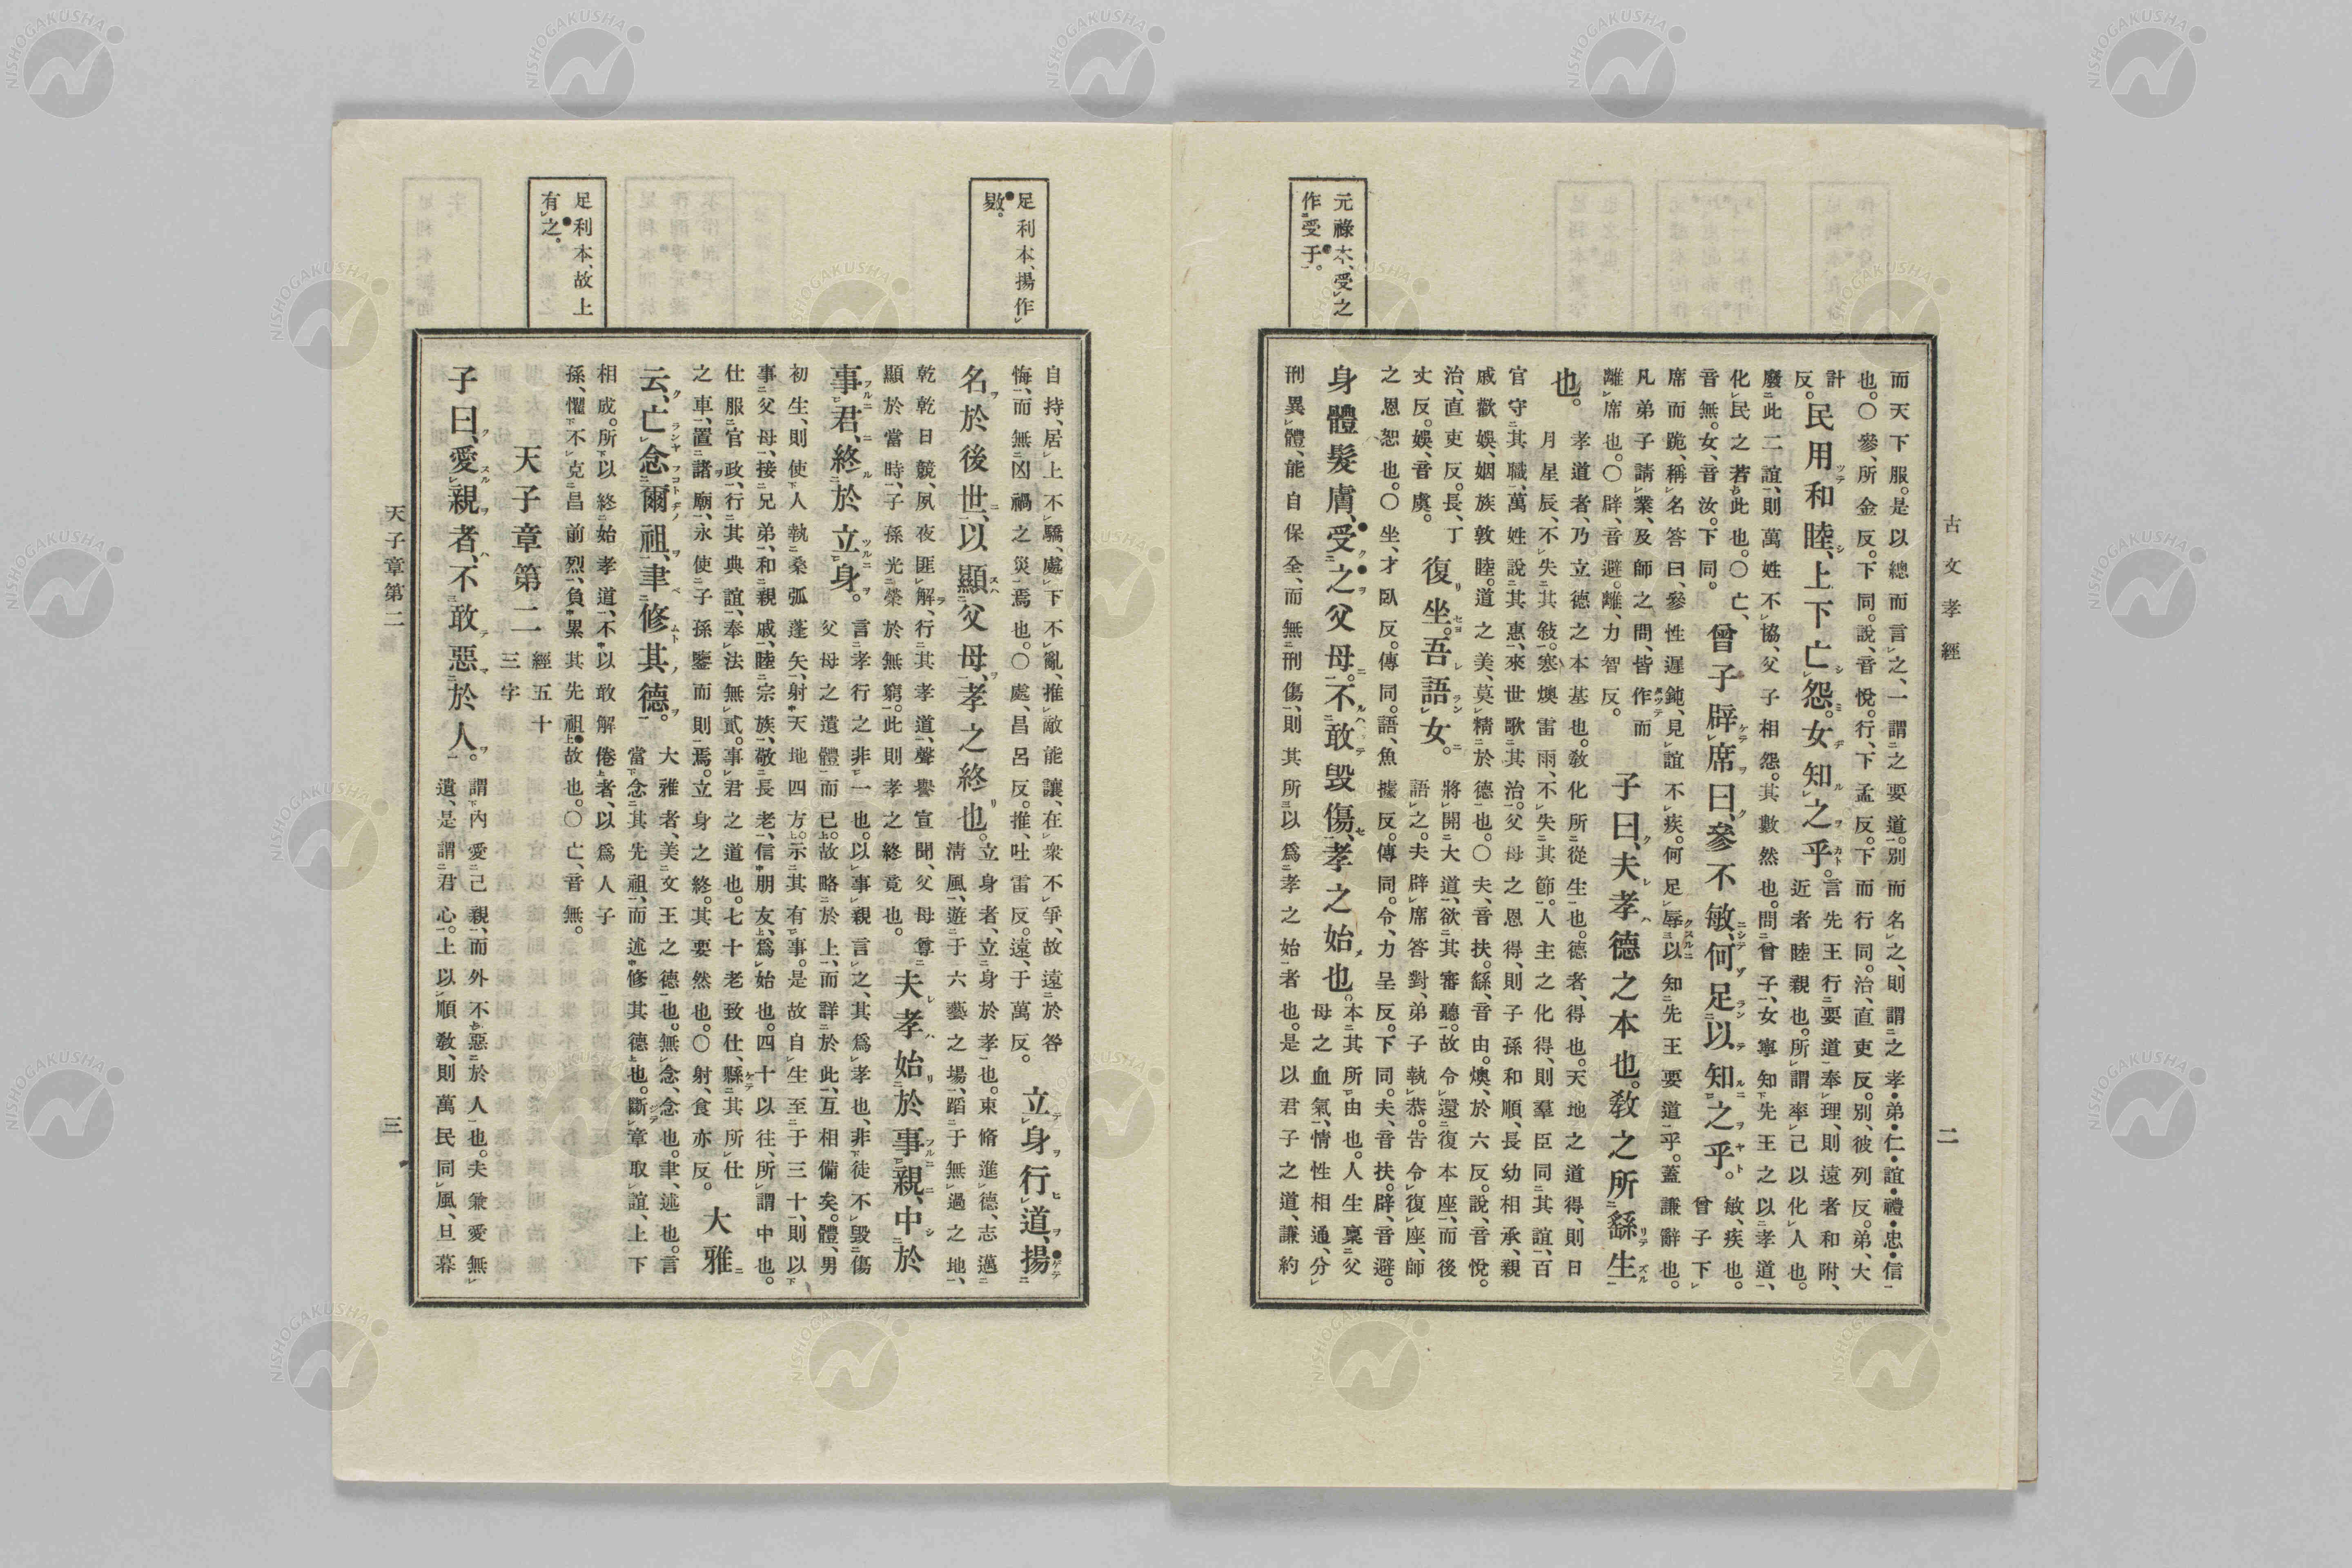 古文孝經
二
元祿本、受之
作受于。
而天下服。是以總而言之、一謂之要道。別而名之、則謂之孝・弟・仁・誼・禮・忠・信
也。〇參、所金反。下同。說、音悅。行、下孟反。下而行同。治、直吏反。別、彼列反。弟、大
計
反。
民用和睦、上下亡怨。女知之乎。
言先王行要道奉理、則遠者和附、
近者睦親也。所謂率己以化人也。
廢此二誼、則萬姓不協、父子相怨。其數然也。問曾子、女寧知先王之以孝道、
化民之若此也。〇亡、
音無。女、音汝。下同。
曾子辟席曰、參不敏、何足以知之乎。
敏、疾也。
曾子下
席而跪、稱名答曰、參性遲鈍、見誼不疾。何足辱以知先王要道乎。蓋謙辭也。
凡弟子請業、及師之問、皆作而
離席也。〇辟、音避。離、力智反。
子曰、夫孝德之本也。敎之所繇生
也。
孝道者、乃立德之本基也。敎化所從生也。德者、得也。天地之道得、則日
月星辰、不失其敍。寒燠雷雨、不失其節。人主之化得、則羣臣同其誼、百
官守其職、萬姓說其惠、來世歌其治。父母之恩得、則子孫和順、長幼相承、親
戚歡娛、姻族敦睦。道之美、莫精於德也。〇夫、音扶。繇、音由。燠、於六反。說、音悅。
治、直吏反。長、丁
丈反。娛、音虞。
復坐。吾語女。
將開大道、欲其審聽。故令還復本座、而後
語之。夫辟席答對、弟子執恭。告令復座、師
之恩恕也。〇坐、才臥反。傳同。語、魚據反。傳同。令、力呈反。下同。夫、音扶。辟、音避。
身體髮膚、受之父母。不敢毀傷、孝之始也。
本其所由也。人生稟父
母之血氣、情性相通、分
刑異體、能自保全、而無刑傷、則其所以爲孝之始者也。是以君子之道、謙約
足利本、揚作
敭。
足利本、故上
有之。
自持、居上不驕、處下不亂、推敵能讓、在衆不爭、故遠於咎
悔、而無凶禍之災焉也。〇處、昌呂反。推、吐雷反。遠、于萬反。
立身行道、揚
名於後世、以顯父母、孝之終也。
立身者、立身於孝也。束脩進德、志邁
淸風、遊于六藝之場、蹈于無過之地、
乾乾日競、夙夜匪解、行其孝道、聲譽宣聞、父母尊
顯於當時、子孫光榮於無窮。此則孝之終竟也。
夫孝始於事親、中於
事君、終於立身。
言孝行之非一也。以事親言之、其爲孝也、非徒不毀傷
父母之遺體而已。故略於上、而詳於此、互相備矣。體、男
初生、則使人執桑弧蓬矢、射天地四方。示其有事。是故自生至于三十、則以
事父母、接兄弟、和親戚、睦宗族、敬長老、信朋友、爲始也。四十以往、所謂中也。
仕服官政、行其典誼、奉法無貳。事君之道也。七十老致仕、縣其所仕
之車、置諸廟、永使子孫鑒而則焉。立身之終。其要然也。〇射、食亦反。
大雅
云、亡念爾祖、聿修其德。
大雅者、美文王之德也。無念、念也。聿、述也。言
當念其先祖、而述修其德也。斷章取誼、上下
相成。所以終始孝道、不以敢解倦者、以爲人子
孫、懼不克昌前烈、負累其先祖故也。〇亡、音無。
天子章第二
經五十
三字
子曰、愛親者、不敢惡於人。
謂內愛己親、而外不惡於人也。夫兼愛無
遺、是謂君心。上以順敎、則萬民同風、旦暮
天子章第二
三